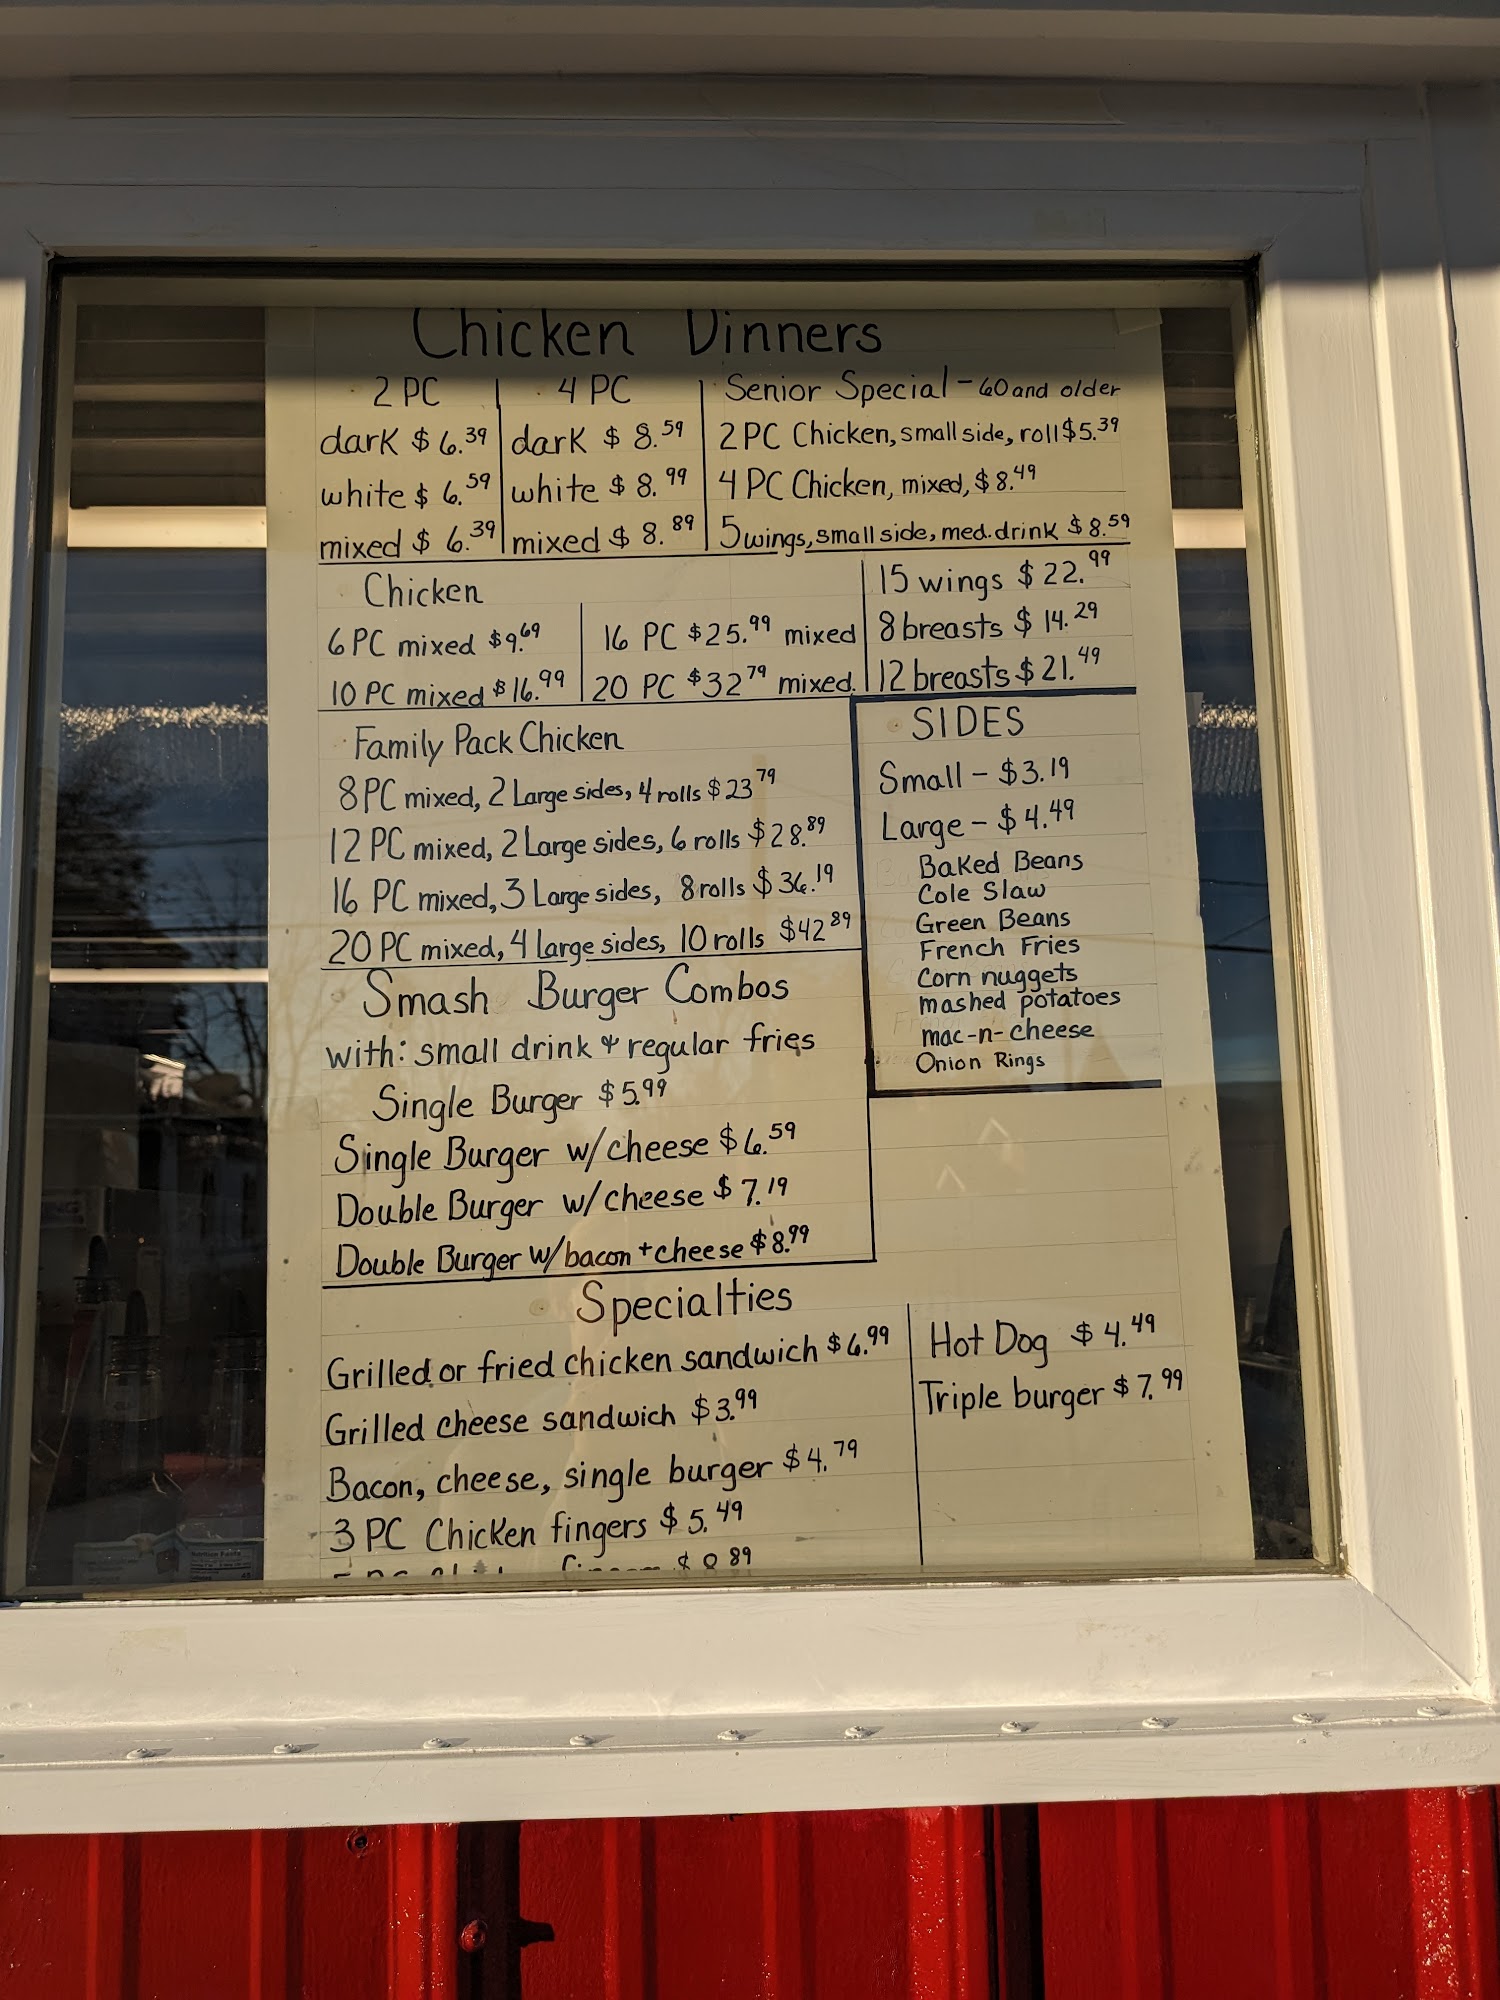 Chicken Dinners
2 PC
dark $6.39
white $6.59
mixed $6.39
4 PC
dark $8.59
white $8.99
mixed $8.89
Senior Special - 60 and older
2 PC Chicken, small side, roll $5.39
4 PC Chicken, mixed, $8.49
5 wings, small side, med. drink $8.59
Chicken
6 PC mixed $9.69
10 PC mixed $16.99
16 PC $25.99 mixed
20 PC $32 79 mixed.
15 wings $22.99
8 breasts $14.29
12 breasts $21.49
Family Pack Chicken
8 PC mixed, 2 Large sides, 4 rolls $23 79
12 PC mixed, 2 Large sides, 6 rolls $28.89
16 PC mixed, 3 Large sides, 8 rolls $36.19
20 PC mixed, 4 large sides, 10 rolls $42 89
SIDES
Small - $3.19
Large - $4.49
Baked Beans
Cole Slaw
Green Beans
French Fries
Corn nuggets
mashed potatoes
mac-n-cheese
Onion Rings
Smash Burger Combos
with: small drink & regular fries
Single Burger $5.99
Single Burger w/cheese $6.59
Double Burger w/cheese $7.19
Double Burger w/bacon + cheese $8.99
Specialties
Grilled or fried chicken sandwich $6.99
Grilled cheese sandwich $3.99
Bacon, cheese, single burger $4.79
3 PC Chicken fingers $5.49
Hot Dog $4.49
Triple burger $7.99